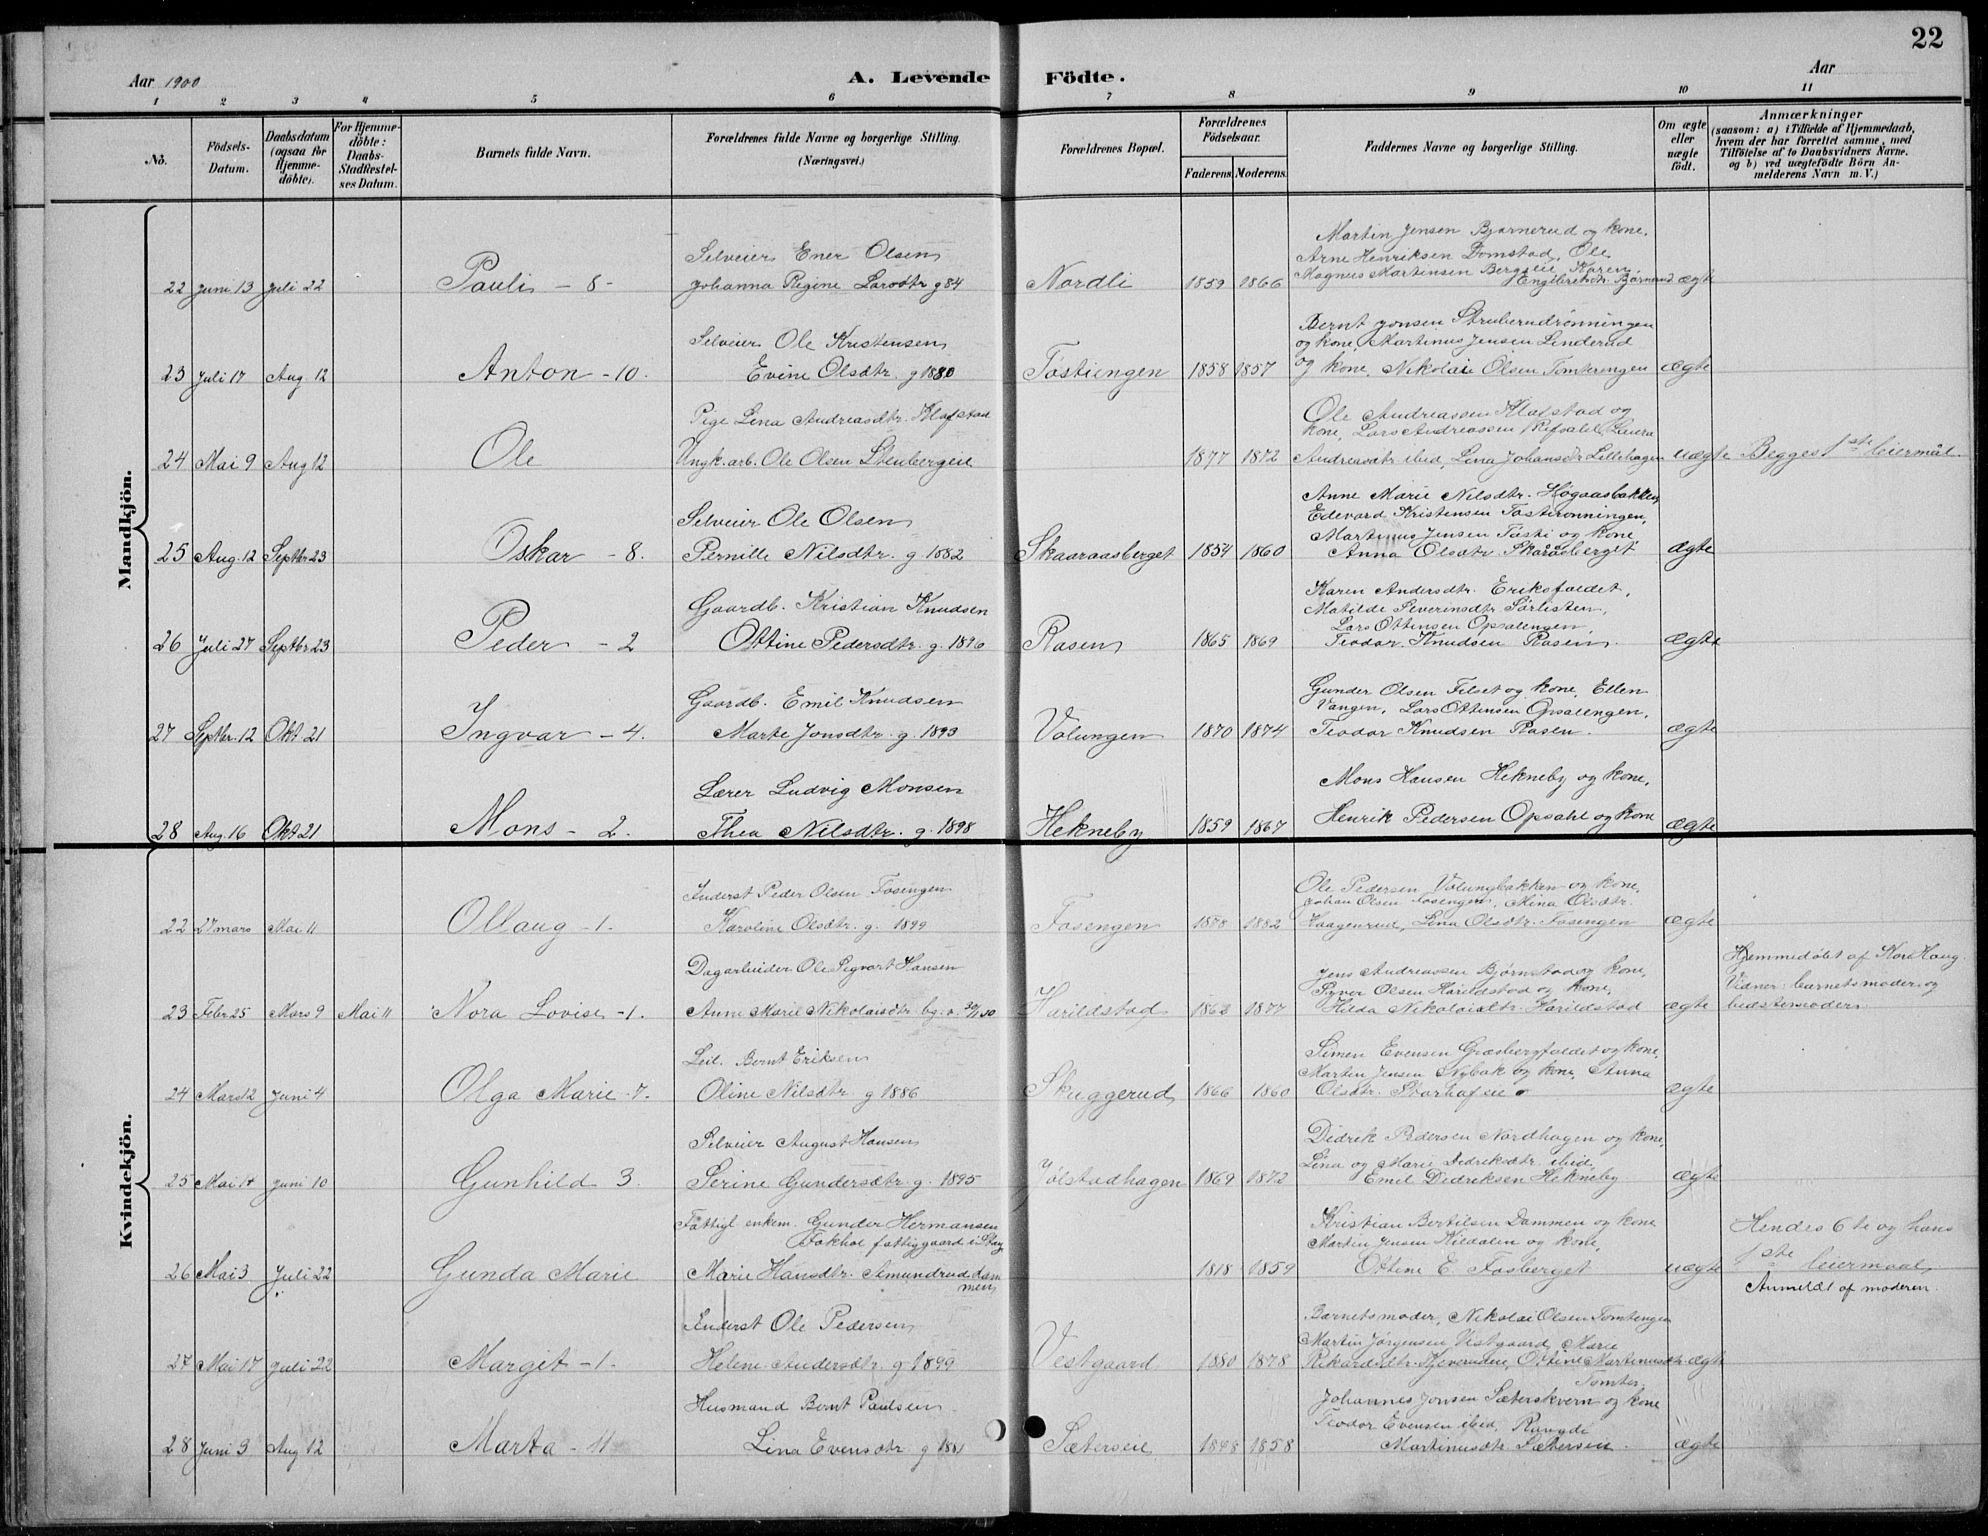 22
Aar 1900
A. Levende Födte.
Aar
1 2 3 4 5 6 7 8 9 10 11
No.
Födsels-Datum.
Daabsdatum (ogsaa for Hjemme-döbte).
For Hjemme-döbte: Daabs-Stadfæstel-ses Datum.
Barnets fulde Navn.
Forældrenes fulde Navne og borgerlige Stilling. (Næringsvei.)
Forældrenes Bopæl.
Forældrenes Födselsaar.
Faderens Moderens
Faddernes Navne og borgerlige Stilling.
Om ægte eller uægte födt.
Anmærkninger
(saasom: a) i Tilfælde af Hjemmedaab, hvem der har forrettet samme, med Tilföielse af to Daabsvidners Navne. og b) ved uægtefödte Börn An-melderens Navn m. V.)
Mandkjön.
Selveier Ener Olsen
Martin Jensen Bjørnerud og kone,
Arne Henriksen Domstad, Ole
Magnus Martensen Bergseie, Karen
22 Juni 13 Juli 22 Pauli - 8 - Johanna Regine Larsdtr g 84 Nordli 1859 1866 Engebretsdtr. Bjørnerud ægte
Selveier Ole Kristensen
Bernt Jonsen Struberudrønningen
og kone, Martinus Jensen Linderud
23 Juli 17 Aug 12 Anton - 10. Evine Olsdtr. g 1880 Tøstiengen 1858 1857 og kone, Nikolaie Olsen Tomterengen ægte
Pige Lina Andreasdtr. Klafstad
Ole Andreassen Klafstad og
kone, Lars Andreassen Refsahl, Laura
24 Mai 9 Aug 12 Ole Ungk. arb. Ole Olsen Stenbergeie 1877 1872 Andreasdtr ibid, Lina Johansdtr Lillehagen uægte Begges 1ste leiermål
Selveier Ole Olsen
Anne Marie Nilsdtr. Høgaasbakken,
Edevard Kristensen Tøstirønningen,
Martinus Jensen Tøsti og kone,
25 Aug. 12 Septbr 23 Oskar - 8. Pernille Nilsdtr. g 1882 Skaaraasberget 1854 1860 Anna Olsdtr. Skåråsberget ægte
Gaardb. Kristian Knudsen
Karen Andersdtr. Eriksfaldet,
Matilde Severinsdtr Sørlisten,
Lars Ottinsen Opsalengen,
26 Juli 27 Septbr 23 Peder - 2 Ottine Pedersdtr. g. 1896 Rasen 1865 1869 Teodor Knudsen Rasen. ægte
Gaardb. Emil Knudsen
Gunder Olsen Filset og kone, Ellen
Vangen, Lars Ottensen Opsalengen,
27 Septbr. 12 Okt 21 Ingvar - 4. Marte Jonsdtr. g. 1893 Volungen 1870 1874 Teodor Knudsen Rasen. ægte
Lærer Ludvig Monsen
Mons Hansen Hekneby og kone,
28 Aug. 16 Okt 21 Mons - 2. Thea Nilsdtr. g. 1898 Hekneby 1859 1867 Henrik Pedersen Opsahl og kone ægte
Kvindekjön.
Inderst Peder Olsen Fosengen
Ole Pedersen Volungbakken og kone,
Johan Olsen Fosengen, Mina Olsdtr.
22 27 mars Mai 11 Ollaug - 1. Karoline Olsdtr. g. 1899 Fosengen 1878 1882 Haagenrud, Lina Olsdtr. Fosengen ægte
Dagarbeider Ole Sigvart Hansen
Jens Andreassen Bjørnstad og kone,
Syver Olsen Harildstad og kone,
Hjemmedøbt af Kari Haug.
Vidner: barnets moder og
23 Febr. 25 Mars 9 Mai 11 Nora Lovise - 1. Anne Marie Nikolaisdtr. Harildstad 1877 Hilda Nikolaidtr. Harildstad ægte bedstemoder
Leil. Bernt Eriksen
Simen Evensen Græsbergfaldet og kone,
Martin Jensen Nybak og kone, Anna
24 Mars 12 Juni 4 Olga Marie - 7. Oline Nilsdtr. g 1886 Skuggerud 1866 1860 Olsdtr. ægte
Selveier August Hansen
Didrik Pedersen Nordhagen og kone,
Lina og Marie Didriksdtr. ibid,
25 Mai 14 Juni 10 Gunhild 3. Serine Gundersdtr. g. 1895 Jølstadhagen 1869 1872 Emil Didriksen Hekneby. ægte
Fattigl enkem. Gunder Hermansen
Fokhol fattiggaard i Stange
Kristian Bertilsen Dammen og kone
Martin Jensen Kildalen og kone,
Hendes 6te og hans
1ste leiermaal
26 Mai 3 Juli 22 Gunda Marie Marie Hansdtr. Amundrud dammen 1818 1859 Ottine E. Fosberget uægte Anmeldt af moderen.
Inderst Ole Pedersen
Barnets moder, Nikolai Olsen Tomtengen
Martin Jørgensen Vestgaard, Marie
27 Mai 17 Juli 22 Margit - 1. Helene Andersdtr. g 1899 Vestgaard 1880 1878 Rikardsdtr. Ottine Martinusdtr. Tomter ægte
Husmand Bernt Paulsen
Johannes Jonsen Sæterskvern og kone
Teodor Evensen ibid, Rangdi
28 Juni 3 Aug 12 Marta - 11 Lina Evensdtr. g 1881 Sæterseie 1858 Martinusdtr. Sæterseie. ægte